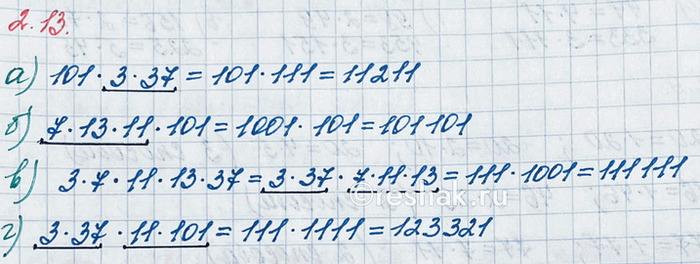 2.13.
а) 101 · 3 · 37 = 101 · 111 = 11211
б) 7 · 13 · 11 · 101 = 1001 · 101 = 101101
в) 3 · 7 · 11 · 13 · 37 = 3 · 37 · 7 · 11 · 13 = 111 · 1001 = 111111
©reshak.ru
г) 3 · 37 · 11 · 101 = 111 · 1111 = 123321